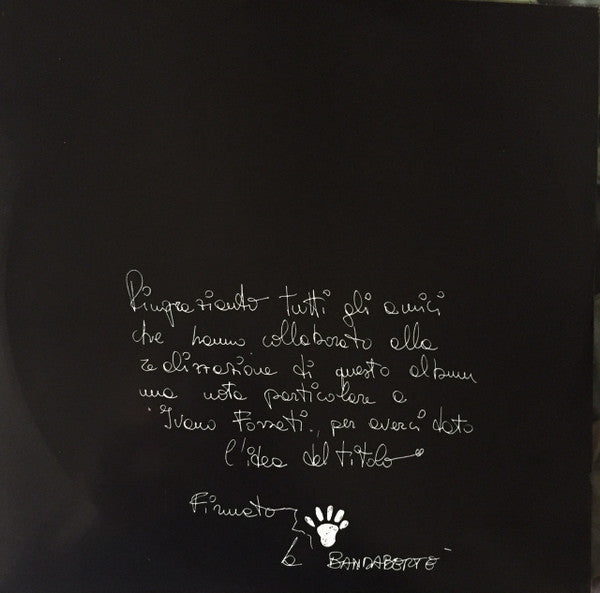 Ringraziamo tutti gli amici
che hanno collaborato alla
realizzazione di questo album
una nota particolare a
"Ivano Fossati", per averci dato
l'idea del titolo
Firmato
la BANDABERTÈ